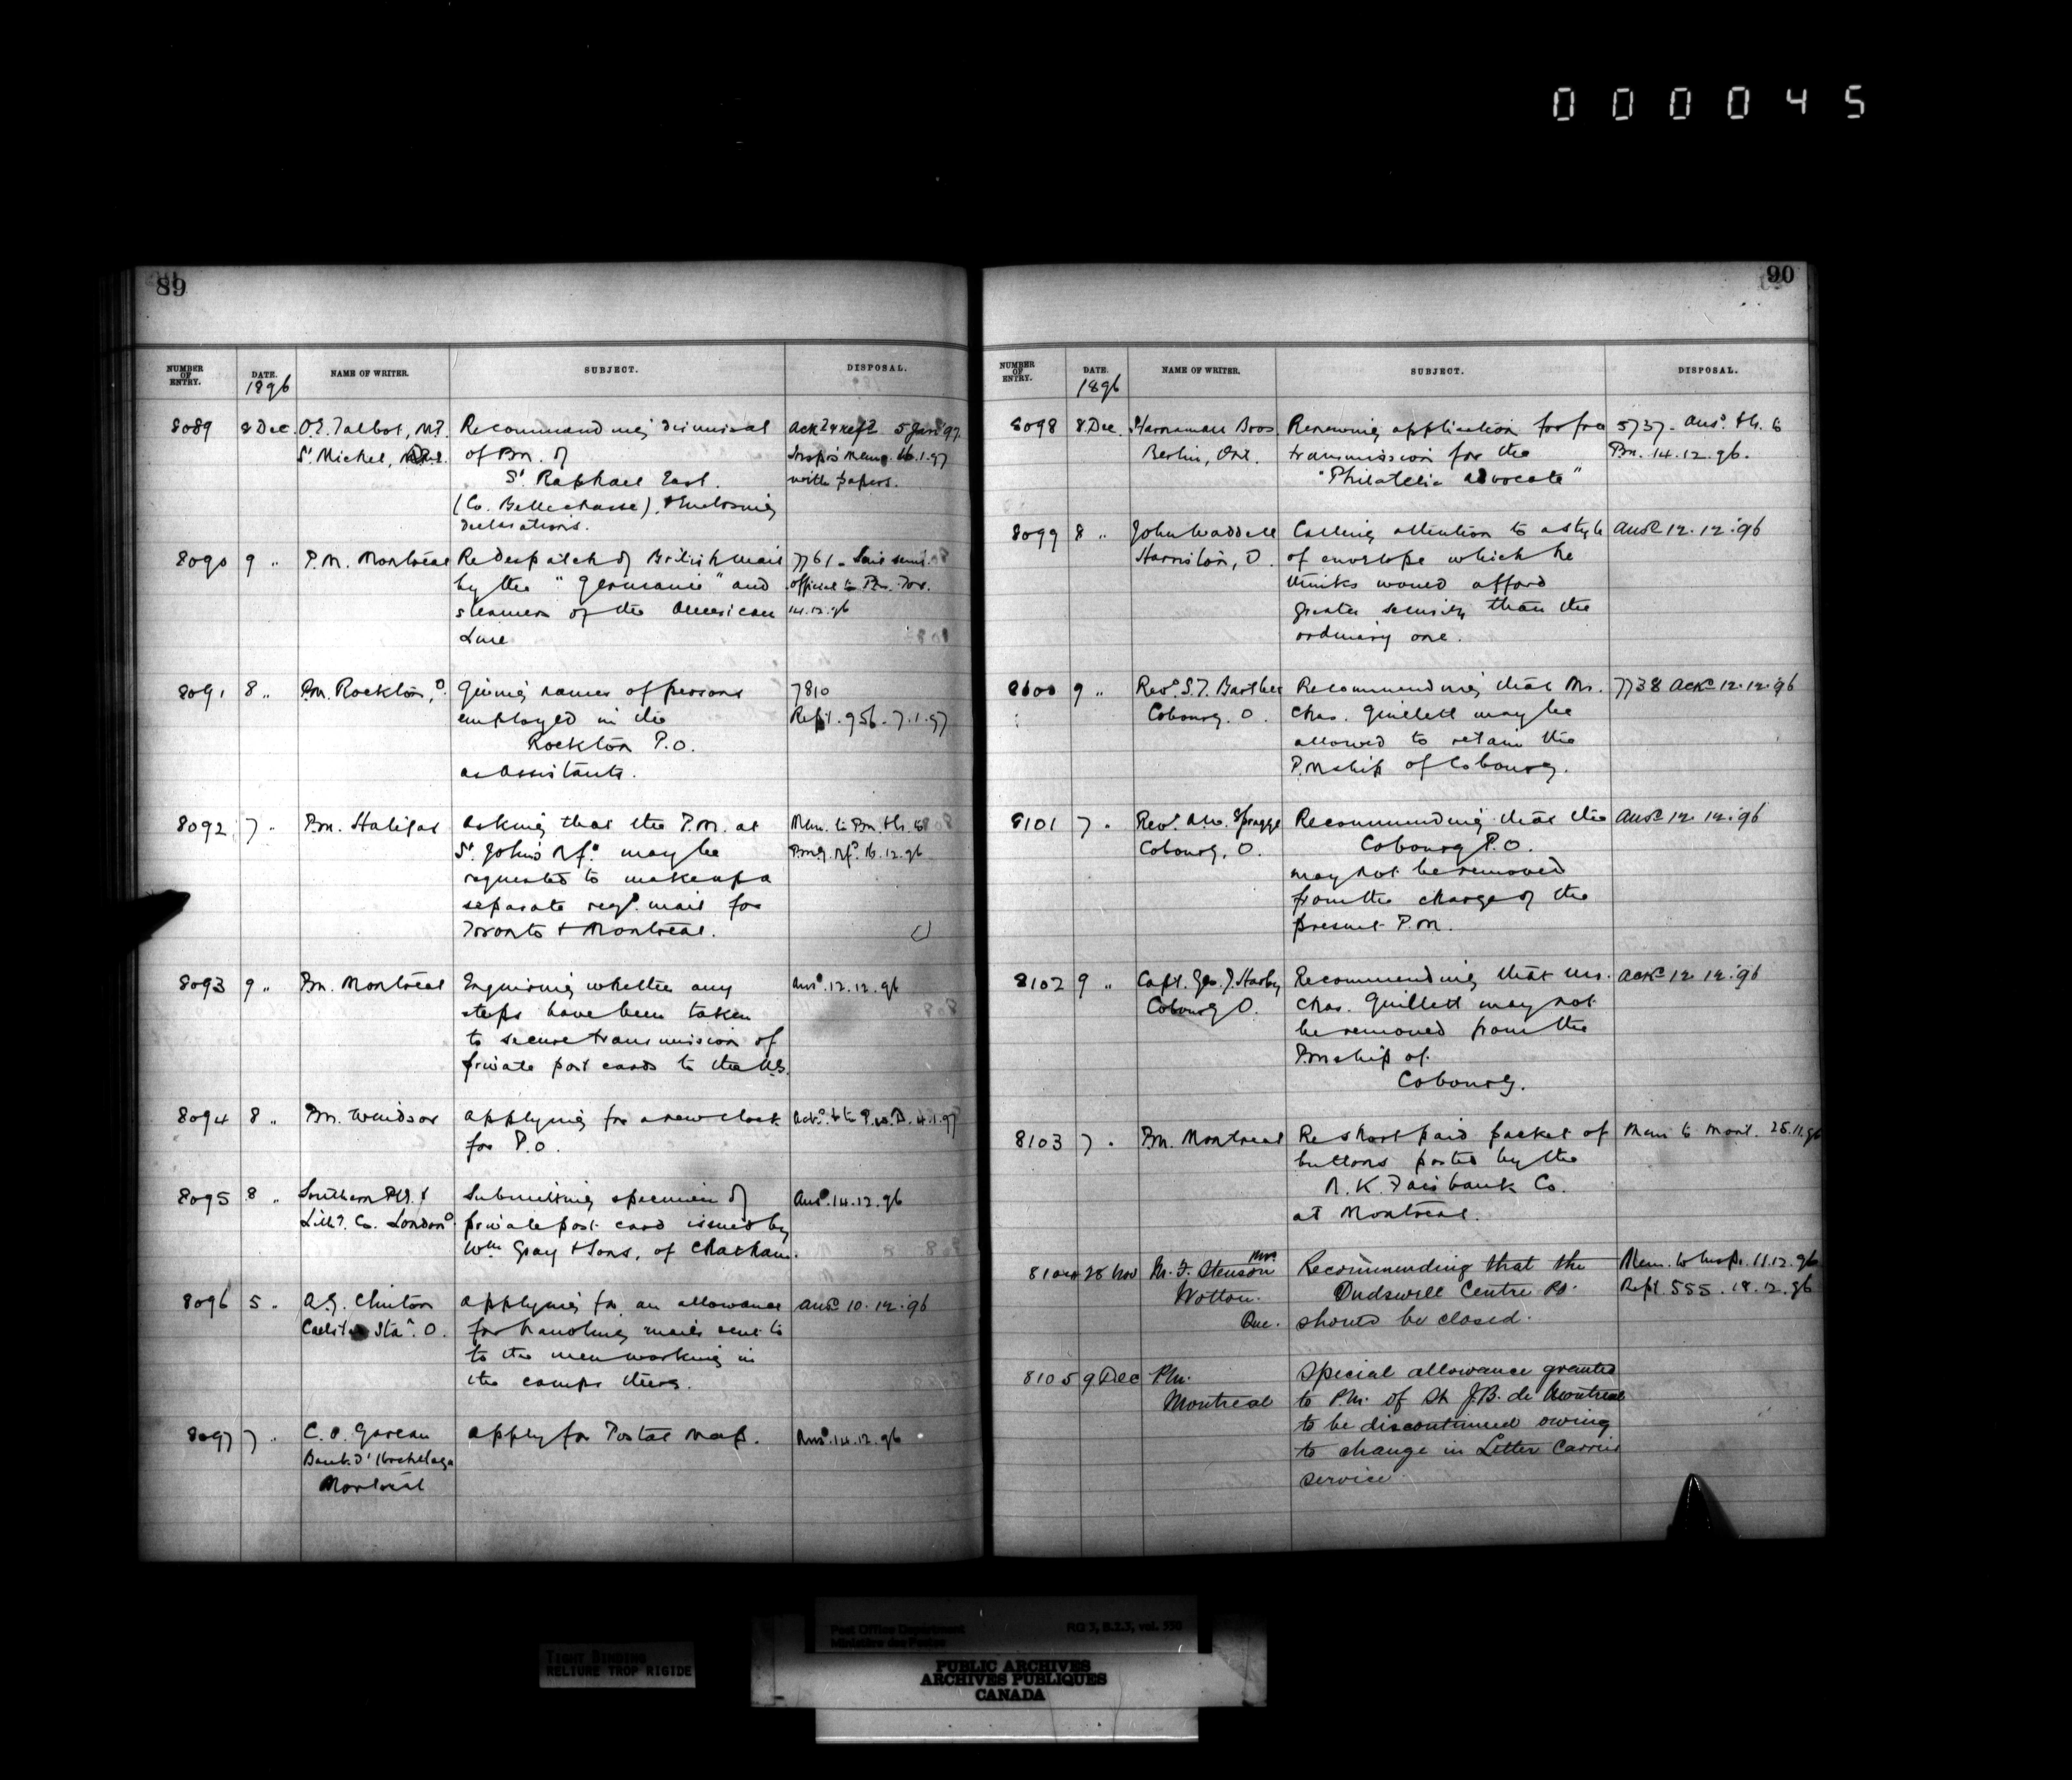 000045
89
NUMBER OF ENTRY. DATE. NAME OF WRITER. SUBJECT. DISPOSAL.
1896
8089 8 Dec. O.E. Talbot, M.P. Recommending dismissal Ackd & refd 5 Jan '97
St Michel, Que. of Pm. of Insp's Memo. 16.1.97
St Raphael East. with papers.
(Co. Bellechasse), & enclosing
declarations.
8090 9 " P.M. Montreal Re despatch of British mail 7761 - Said semi-
by the "Germanic" and official to Pm. Tor.
steamers of the American 14.12.96
Line
8091 8 " Pm. Rockton, O. Giving names of persons 7810
employed in the Rept. 956 - 7.1.97
Rockton P.O.
as assistants.
8092 7 " Pm. Halifax Asking that the P.M. at Mem. to Pm. th. to
St. John's Nfd may be PmG. Nfd. 16.12.96
requested to make up a
separate regd. mail for
Toronto & Montreal.
8093 9 " Pm. Montreal Enquiring whether any Ansd. 12.12.96
steps have been taken
to secure transmission of
private post cards to the U.S.
8094 8 " Pm. Windsor Applying for a new clock Ackd. & to P.W.D. 4.1.97
for P.O.
8095 8 " Southern Ptg. & Submitting specimen of Ansd. 14.12.96
Lith. Co. London O. private post card issued by
Wm Gray & Sons, of Chatham.
8096 5 " A.G. Clinton Applying for an allowance Ansd 10.12.96
Sta. O. for handling mails sent to
to the men working in
the camps there.
8097 7 " C. O. Gareau Apply for Postal Map. Ansd. 14.12.96
Bank d'Hochelaga
Montreal
90
NUMBER OF ENTRY. DATE. NAME OF WRITER. SUBJECT. DISPOSAL.
1896
8098 8 Dec. Harnaman Bros. Renewing application for free 5737 - Ansd. th. to
Berlin, Ont. transmission for the Pm. 14.12.96.
"Philatelic Advocate"
8099 8 " John Waddell Calling attention to a style Ansd 12.12.96
Harriston, O. of envelope which he
thinks would afford
greater security than the
ordinary one.
8100 9 " Revd. S.T. Bartlett Recommending that Mr. 7738 Ackd 12.12.96
Cobourg. O. Chas. Guillett may be
allowed to retain the
P.Mship of Cobourg.
8101 7 " Revd. Spragge Recommending that the Ansd 12.12.96
Cobourg, O. Cobourg P.O.
may not be removed
from the charge of the
present P.M.
8102 9 " Capt. Geo. J. Recommending that Mr. Ackd 12.12.96
Cobourg O. Chas. Guillett may not
be removed from the
Pmship of
Cobourg.
8103 7 " Pm. Montreal Re short paid packet of Mem to Mont. 28.11.96
buttons posted by the
N. K. Fairbank Co.
at Montreal.
8104 28 Nov M. T. Stenson Recommending that the Mem. to Insp. 11.12.96
Wotton. Dudswell Centre PO. Rept. 555. 18.12.96
Que. should be closed.
8105 9 Dec Pm. Special allowance granted
Montreal to P.M. of St J.B. de Montreal
to be discontinued owing
to change in Letter Carrier
service
Post Office Department RG 3, B.2.3, vol. 550
Ministère des Postes
TIGHT BINDING
RELIURE TROP RIGIDE
PUBLIC ARCHIVES
ARCHIVES PUBLIQUES
CANADA